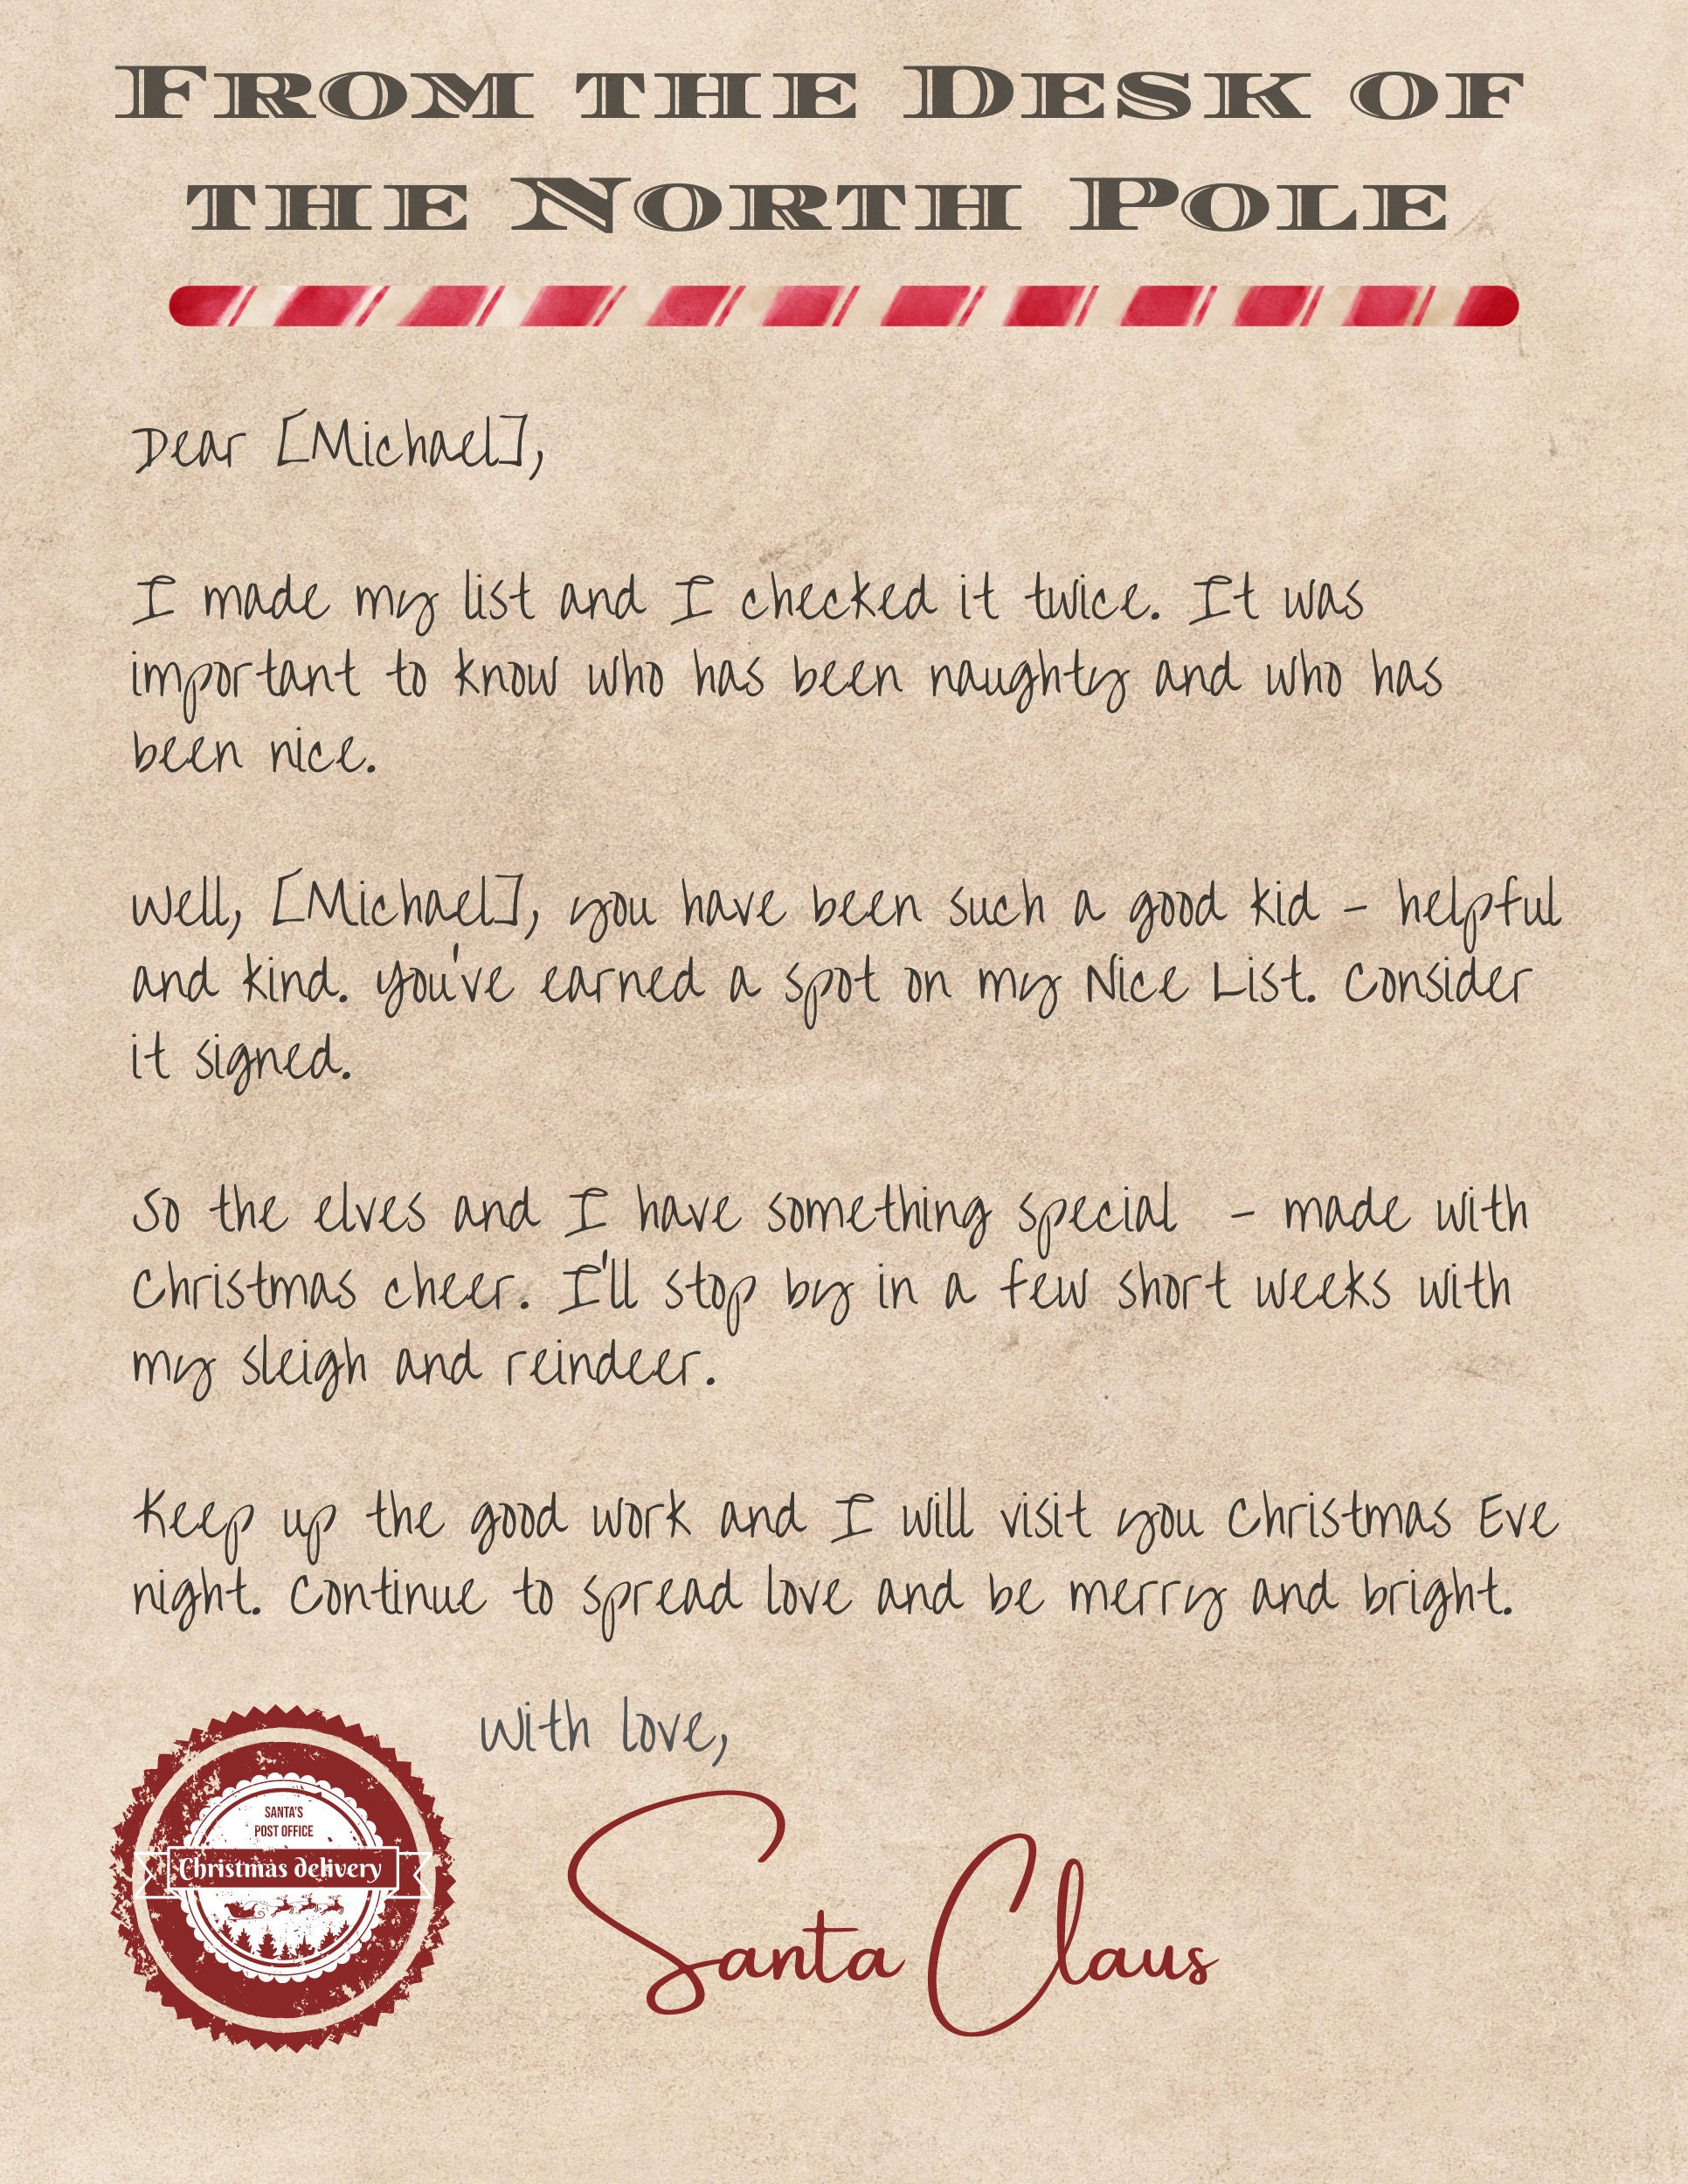 From the Desk of
the North Pole
Dear [Michael],
I made my list and I checked it twice. It was
important to know who has been naughty and who has
been nice.
Well, [Michael], you have been such a good kid - helpful
and kind. You've earned a spot on my Nice List. Consider
it signed.
So the elves and I have something special - made with
Christmas cheer. I'll stop by in a few short weeks with
my sleigh and reindeer.
Keep up the good work and I will visit you Christmas Eve
night. Continue to spread love and be merry and bright.
With love,
Santa Claus
SANTA'S
POST OFFICE
Christmas delivery